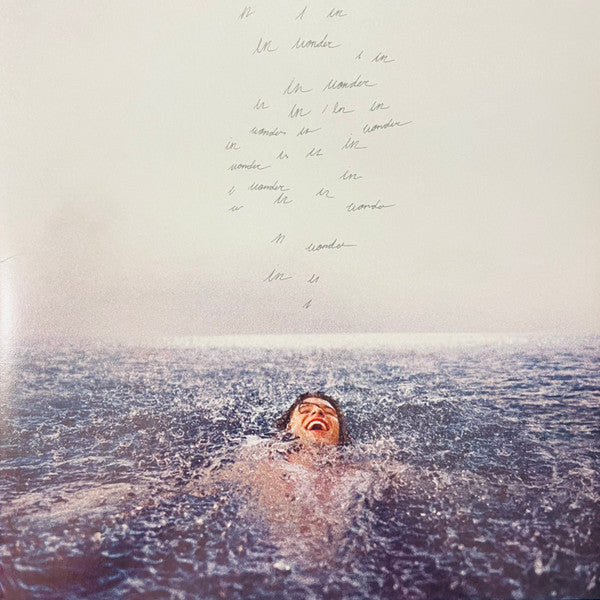 in i in
in wonder
i in
in wonder
in in i in in
wonder is wonder
in
wonder is is in
i wonder in
in is
wonder
in wonder
in is
i